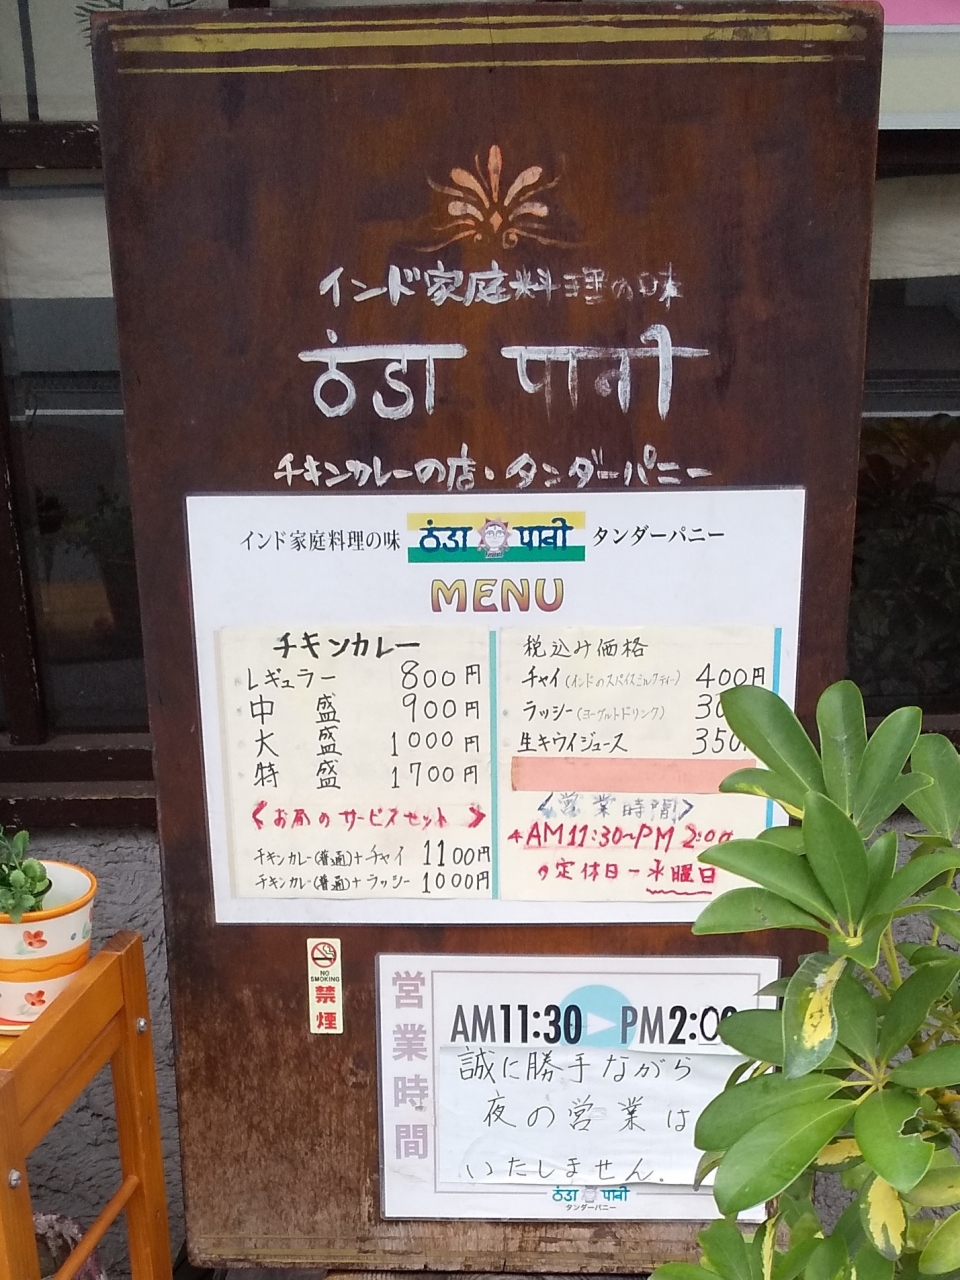 インド家庭料理の味
ठंडा पानी
チキンカレーの店・タンダーパニー
インド家庭料理の味 ठंडा पानी タンダーパニー
MENU
チキンカレー
レギュラー 800円
中盛 900円
大盛 1000円
特盛 1700円
<お昼のサービスセット>
チキンカレー(普通)+チャイ 1100円
チキンカレー(普通)+ラッシー 1000円
税込み価格
チャイ(インドのスパイスミルクティー) 400円
ラッシー(ヨーグルトドリンク) 30
生キウイジュース 350
<営業時間>
AM11:30~PM 2:00
定休日ー水曜日
NO
SMOKING
禁煙
営業時間
AM11:30 PM2:00
誠に勝手ながら
夜の営業は
いたしません.
ठंडा पानी
タンダーパニー